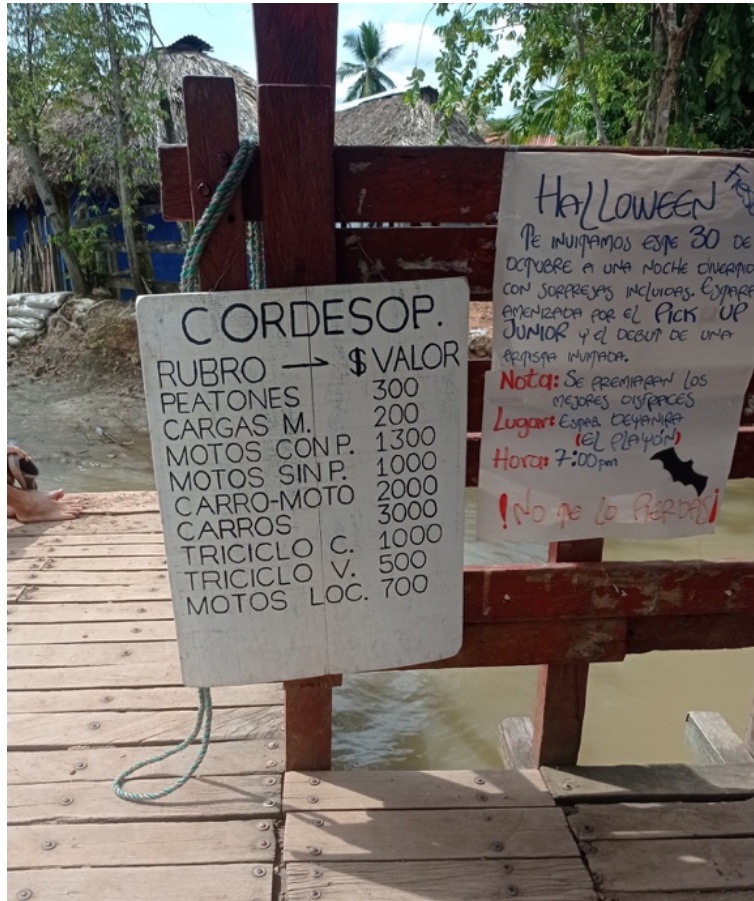 CORDESOP.
RUBRO → $ VALOR
PEATONES 300
CARGAS M. 200
MOTOS CON P. 1300
MOTOS SIN P. 1000
CARRO-MOTO 2000
CARROS 3000
TRICICLO C. 1000
TRICICLO V. 500
MOTOS LOC. 700
HALLOWEEN
TE INVITAMOS ESTE 30 DE
OCTUBRE A UNA NOCHE DIVERTID
CON SORPRESAS INCLUIDAS. ESTARA
AMENIZADA POR EL PICK UP
JUNIOR Y EL DEBUT DE UNA
ARTISTA INVITADA.
Nota: SE PREMIARAN LOS
MEJORES DISFRACES
Lugar: ESTAB. DEYANIRA
(EL PLAYÓN)
Hora: 7:00pm
¡NO TE LO PIERDAS!